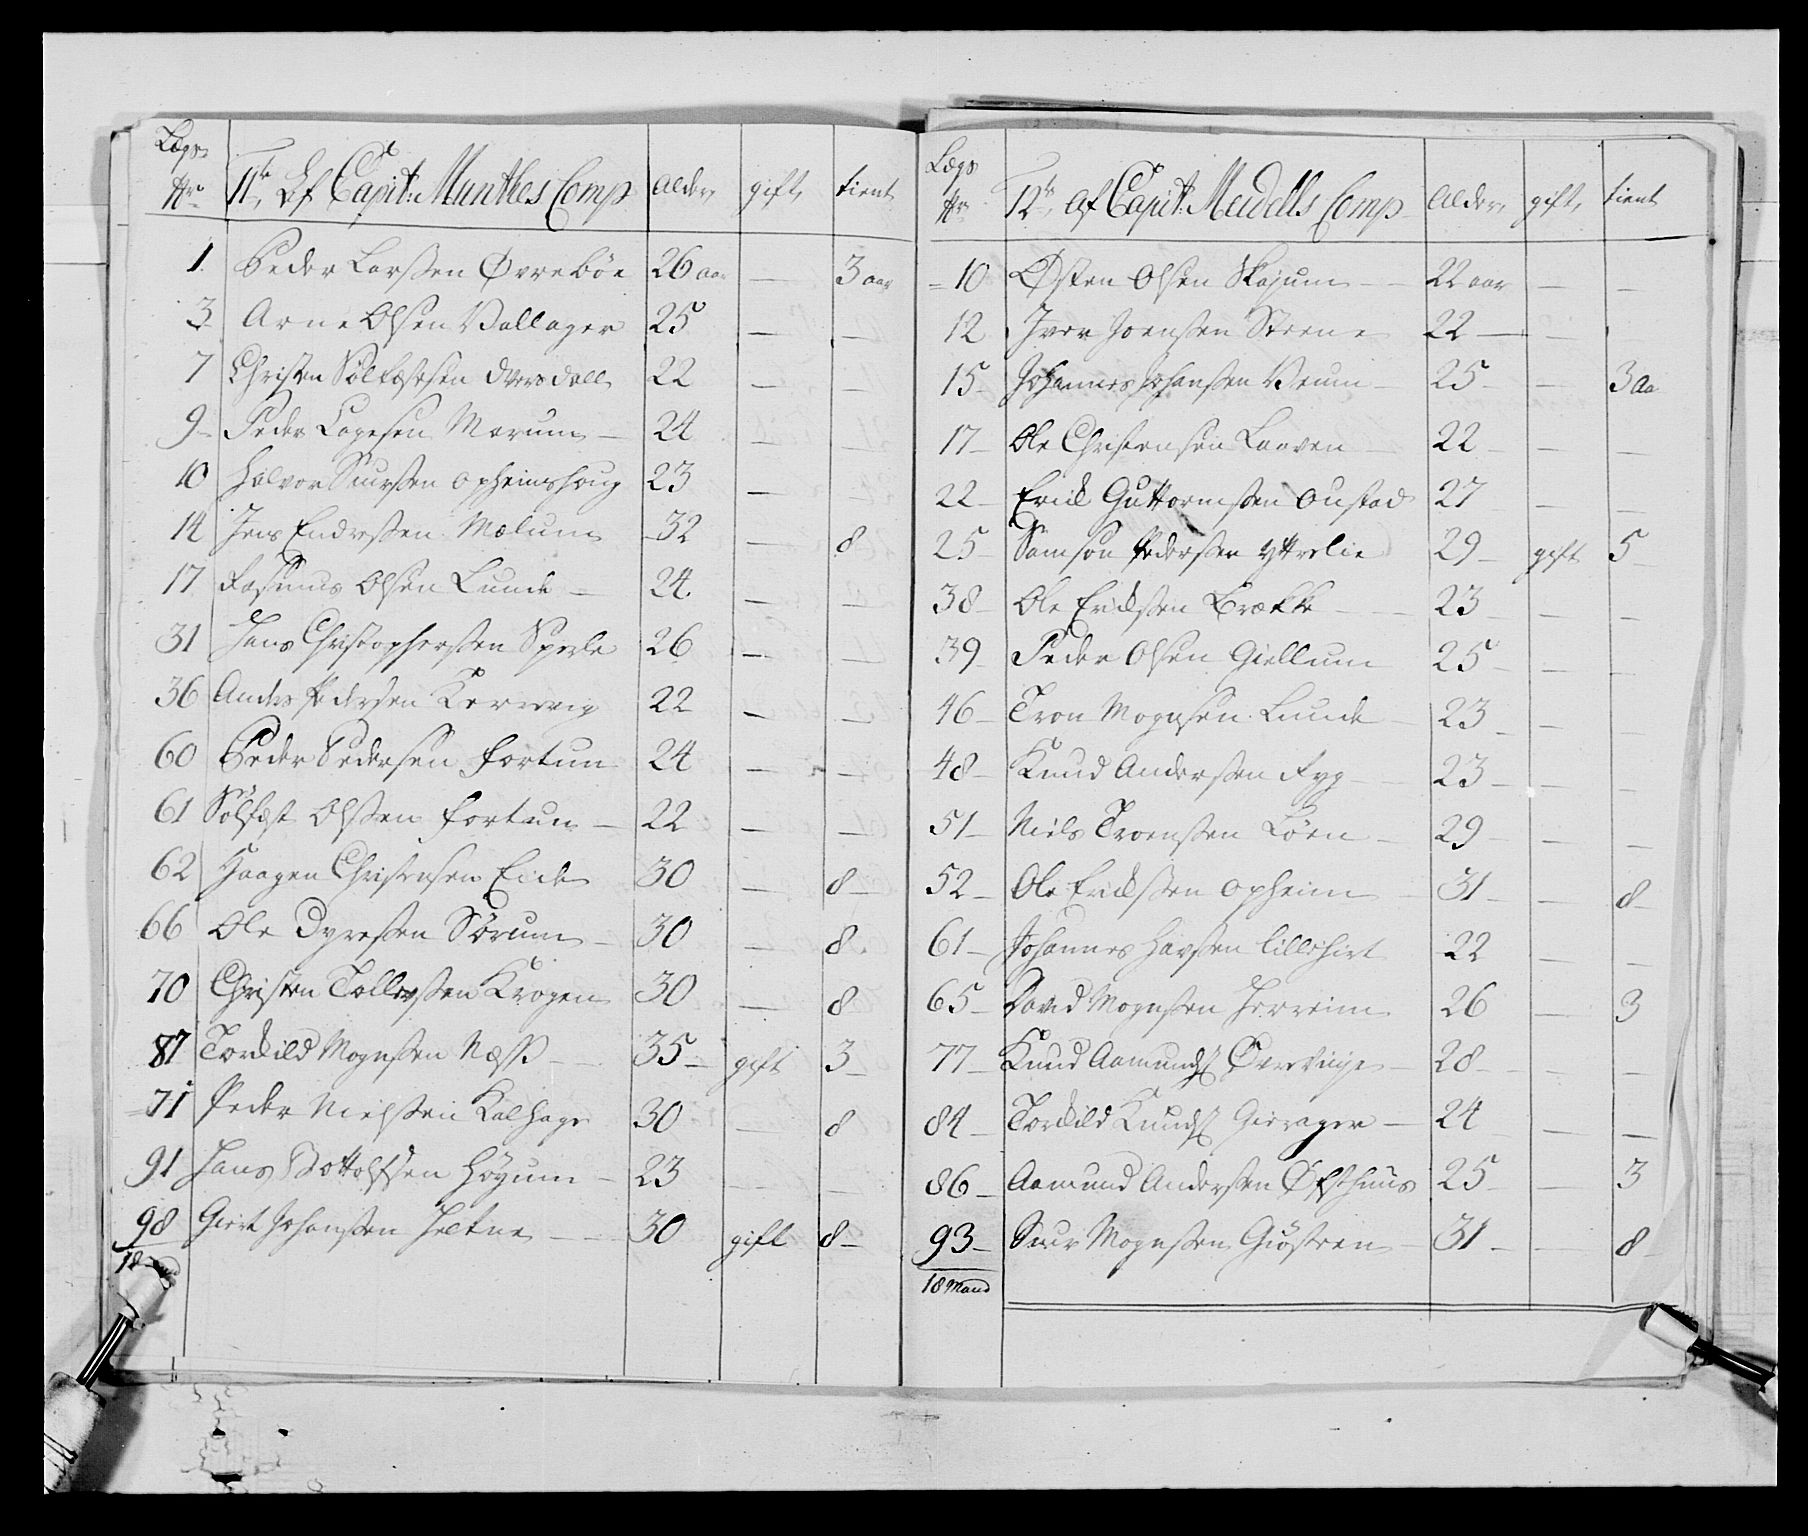 Lægs Nr 11te Af Capit: Munthes Comp Alder, gift, tient
1 Peder Larssen Øvrebøe 26 aar — 3 aar
3 Arne Olsen Vallager 25 — —
7 Christen Sølfæstsen Dversdall 22 — —
9 Peder Lagesen Marum — 24 — —
10 Halvor Siurssen Opheimshoug 23 — —
14 Jens Endressen Mælum 32 — 8
17 Rasmus Olsen Lunde — 24 — —
31 Hans Christophersen Sperle 26 — —
36 Anders Pedersen Kervevig 22 — —
60 Peder Pedersen Fortun 24 — —
61 Sølfest Olssen Fortun — 22 — —
62 Haagen Christensen Eide 30 — 8 —
66 Ole Dyressen Sørum — 30 — 8
70 Christen Tollevssen Krogen 30 — 8
87 Torkild Mognssen Næss — 35 — gift 3 —
71 Peder Nielssen Kalhage 30 — 8
91 Hans Bottolfsen Høyum — 23 — —
98 Giert Johanssen Heltne — 30 gift 8 —
18
Lægs Nr 12te Af Capit: Meidells Comp Alder, gift, tient
10 Østen Olsen Skajum — 22 aar — —
12 Iver Joenssen Steene 22 — —
15 — Johannes Johanssen Veum — 25 — — 3 aa
17 — Ole Christensen Laaven — 22 — — —
22 — Erick Guttormssen Oustad 27 — —
25 — Samson Pederssen Ytrelie 29 — gift 5 —
38 — Ole Erickssen Brække — 23 — —
39 — Peder Olsen Giellum 25 — — —
46 — Tron Mognsen Lunde — 23 — —
48 — Knud Anderssen Ryg — 23 — — —
51 — Niels Troenssen Løen — 29 — — —
52 — Ole Erickssen Opheim — 31 — — 8 —
61 — Johannes Havssen Lillehirt 22 — —
65 — David Mognssen Herreim 26 — 3
77 — Knud Aamunds. Øvrevinje — 28 — — —
84 — Torkild Knuds. Gierager — 24 — —
86 — Aamund Anderssen Øfsthuus 25 — — 3
93 — Siur Mognssen Giøsteen — 31 — — 8
18 Mand